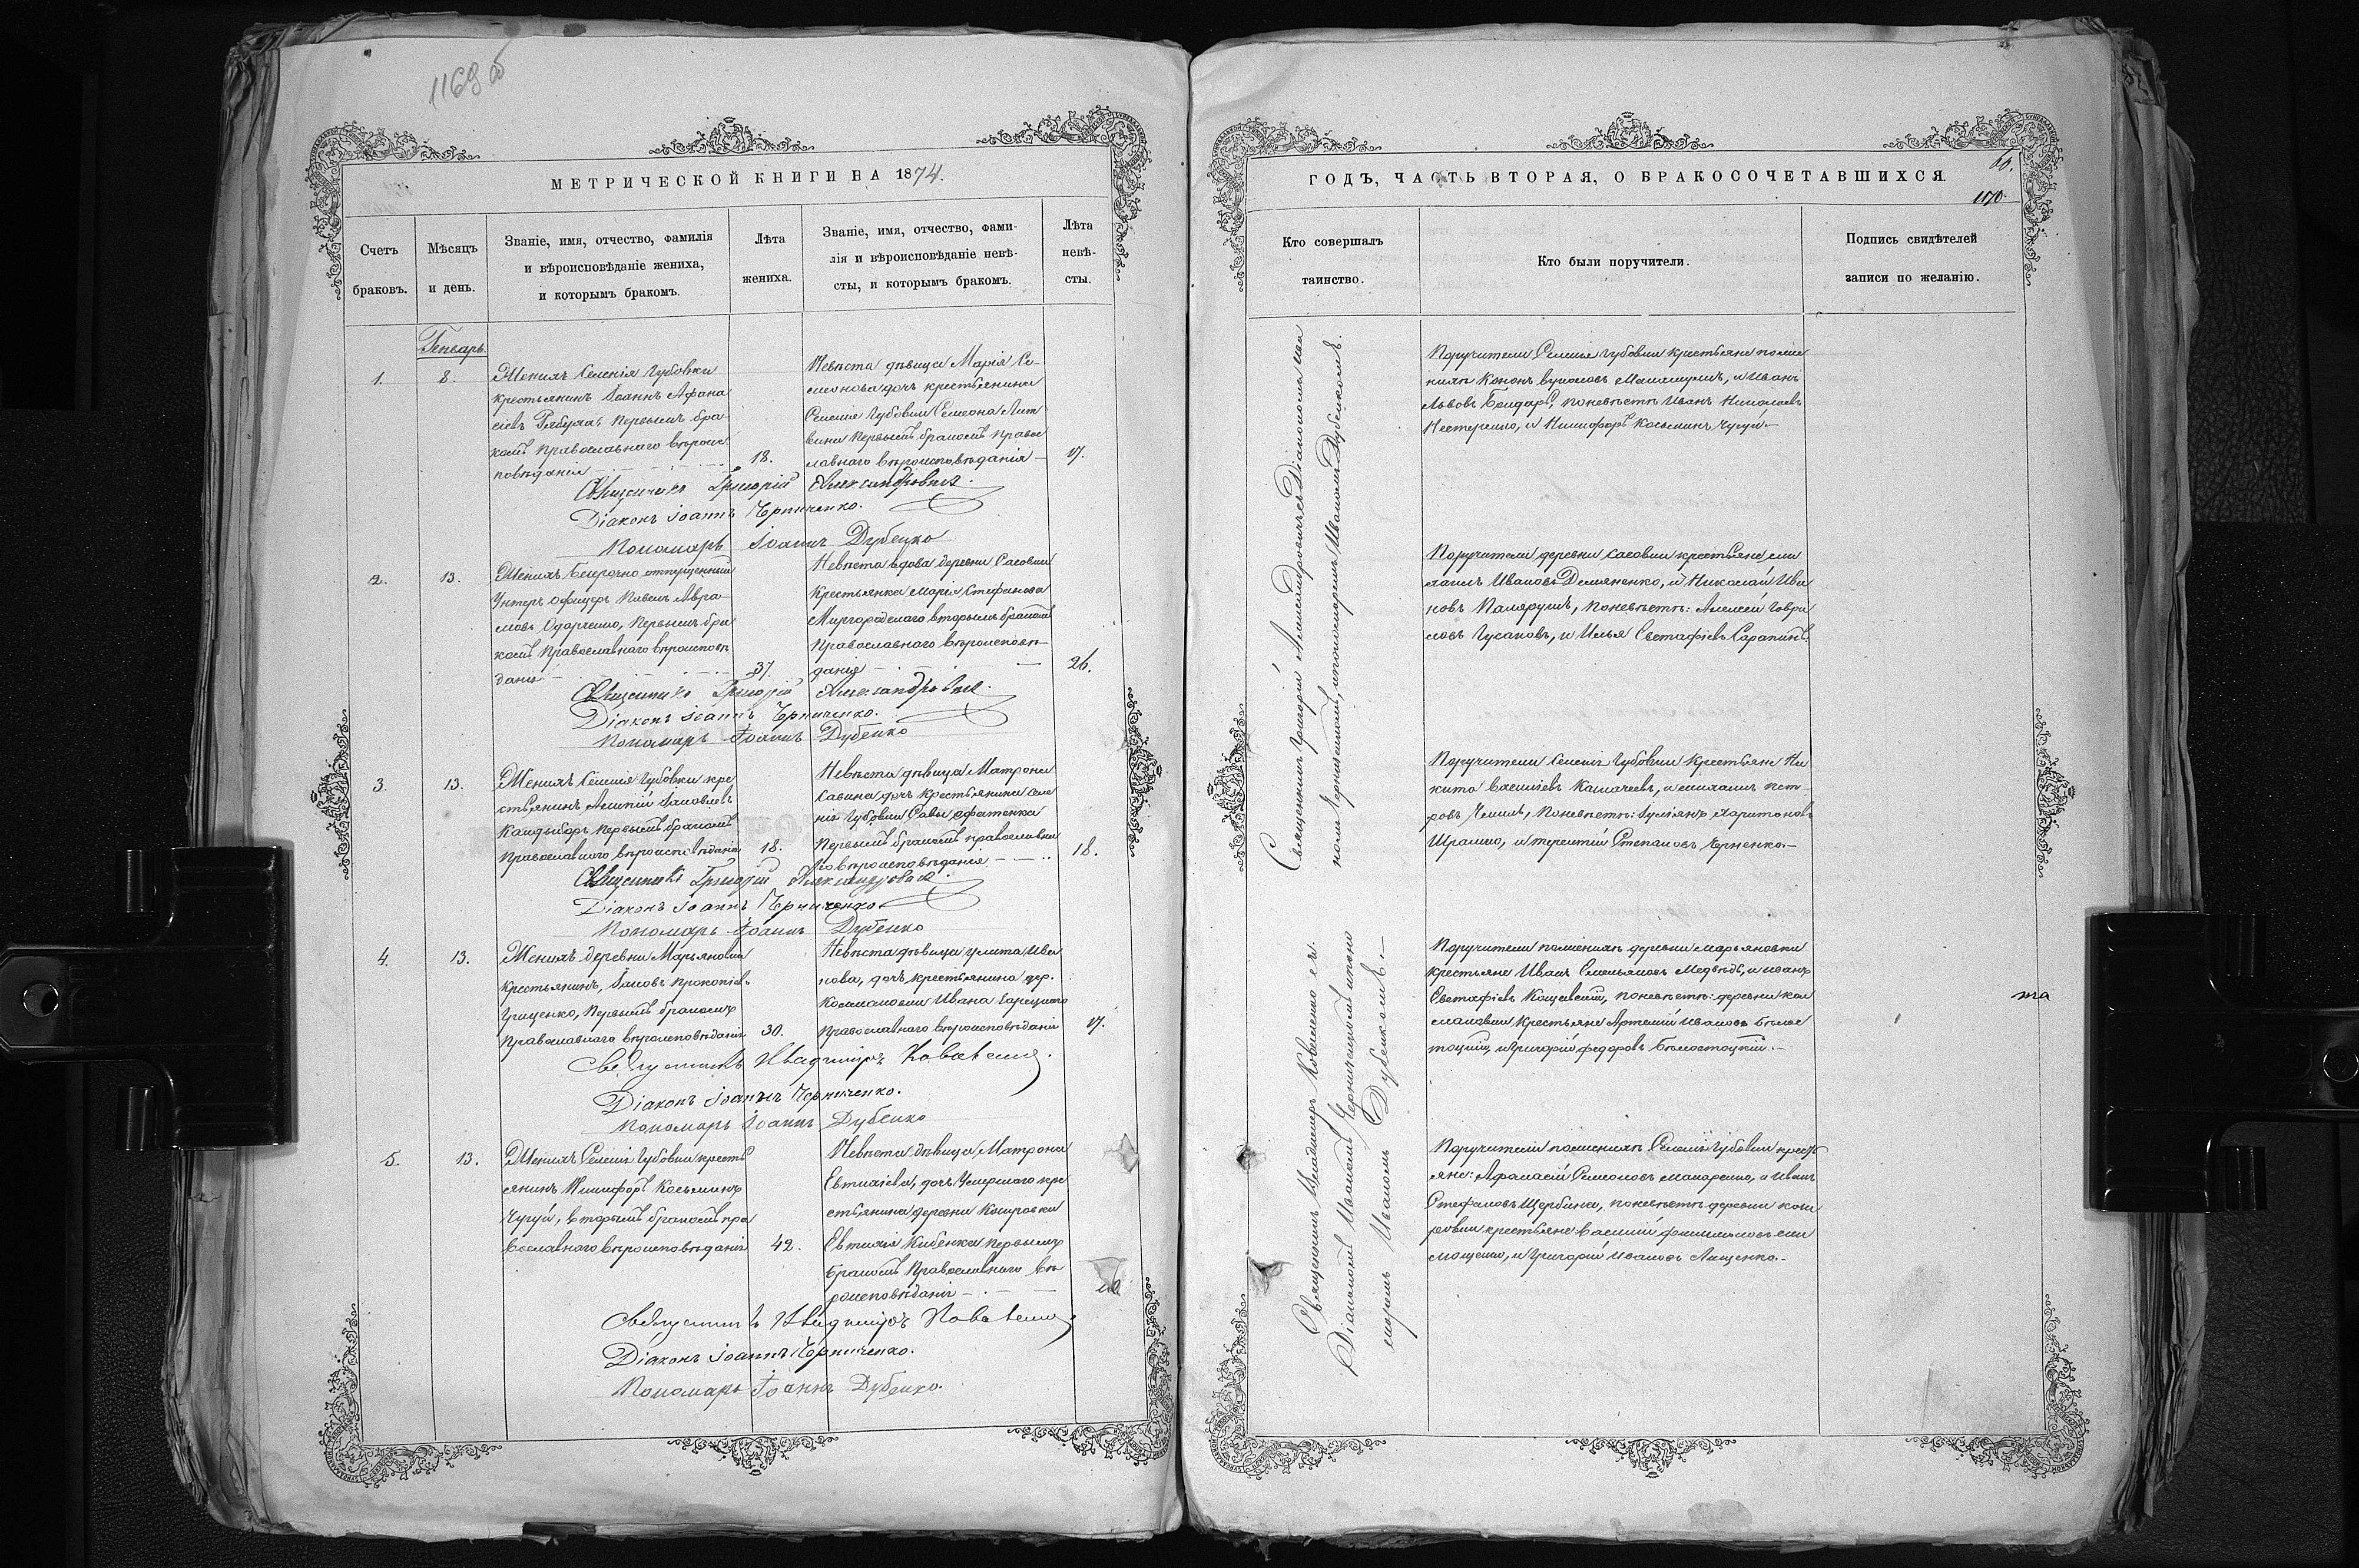 1169 об
МЕТРИЧЕСКОЙ КНИГИ НА 1874.
Счетъ
браковъ.
Мѣсяцъ
и день.
Званіе, имя, отчество, фамилія
и вѣроисповѣданіе жениха,
и которымъ бракомъ.
Лѣта
жениха.
Званіе, имя, отчество, фами-
лія и вѣроисповѣданіе невѣ-
сты, и которымъ бракомъ.
Лѣта
невѣ-
сты.
Генварь.
1.
8.
Женихъ Селенія Губовки
крестьянинъ Іоаннъ Афана
сіевъ первымъ бра-
комъ православнаго вѣроис
повѣданія
18.
Невѣста дѣвица Марія Се-
меонова дочь крестьянина
Селенія Губовки Семеона Лит
вина первымъ бракомъ право
славнаго вѣроисповѣданія
17.
Священникъ Григорій Александровичъ.
Діаконъ Іоаннъ Черниченко.
Пономарь Іоаннъ Дубенко
2.
13.
Женихъ безсрочно отпущенный
Унтеръ офицеръ Павелъ Авра-
мовъ Одарченко, первымъ бра
комъ православнаго вѣроисповѣ
данія
37.
Невѣста вдова деревни Сасовки
крестьянка Марія Стефанова
Миргородскаго вторымъ бракомъ
православнаго вѣроисповѣ-
данія
26.
Священникъ Григорій Александровичъ.
Діаконъ Іоаннъ Черниченко.
Пономарь Іоаннъ Дубенко
3.
13.
Женихъ Селенія Губовки кре
стьянинъ Іаковлевъ
Кандыборъ первымъ бракомъ
православнаго вѣроисповѣданія
18.
Невѣста дѣвица Матрона
Савина дочь крестьянина селе
нія Губовки Савы
первымъ бракомъ православна
го вѣроисповѣданія
18.
Священникъ Григорій Александровичъ.
Діаконъ Іоаннъ Черниченко
Пономарь Іоаннъ Дубенко
4.
13.
Женихъ деревни Марьяновки
крестьянинъ, Іаковъ Прокопіевъ
Грищенко, первымъ бракомъ
православнаго вѣроисповѣданія
30.
Невѣста дѣвица Улита Ива
нова, дочь крестьянина дер.
Космаловки Ивана
православнаго вѣроисповѣданія
17.
Священникъ Владиміръ
Діаконъ Іоаннъ Черниченко.
Пономарь Іоаннъ Дубенко
5.
13.
Женихъ Селенія Губовки крестъ
янинъ Никифоръ Косьминъ
Чугуй, вторымъ бракомъ пра
вославнаго вѣроисповѣданія
42.
Невѣста дѣвица Матрона
Евтихіева, дочь Умершаго кре
стьянина деревни
Евтихія Кибенка первымъ
бракомъ Православнаго вѣ
роисповѣданія
Священникъ Владиміръ
Діаконъ Іоаннъ Черниченко.
Пономарь Іоаннъ Дубенко.
ГОДЪ, ЧАСТЬ ВТОРАЯ, О БРАКОСОЧЕТАВШИХСЯ.
1170.
Кто совершалъ
таинство.
Кто были поручители.
Подпись свидѣтелей
записи по желанію.
Священникъ Григорій Александровичъ съ Діакономъ Іоан
номъ Черниченкомъ, и пономаремъ Иваномъ Дубенкомъ.
Священникъ Владиміръ съ
Діакономъ Иваномъ Черниченкомъ и поно
маремъ Иваномъ Дубенкомъ.
Поручители Селенія Губовки крестьяне по же
нихѣ Кононъ и Иванъ
Львовъ Бондарь, по невѣстѣ Иванъ Николаевъ
Нестеренко, и Никифоръ Косьминъ Чугуй.
Поручители деревни Сасовки крестьяне Ми
хаилъ Ивановъ Демяненко, и Николай Ива
новъ по невѣстѣ: Алексѣй Гаври
ловъ Гусаковъ, и Илья Евстафіевъ
Поручители Селенія Губовки крестьяне Ни
кита Васильевъ и Михаилъ Пет-
ровъ по невѣстѣ: Харитоновъ
и Терентій Степановъ
Поручители по женихѣ деревни Марьяновки
крестьяне Иванъ Емельяновъ Медвѣдь, и Иванъ
Евстафіевъ по невѣстѣ: деревни Кос
маловки крестьяне Артемій Ивановъ Бѣлос
тоцкій, и Григорій Федоровъ Бѣлостоцкій.
Поручители по женихѣ Селенія Губовки кресть
яне: Афанасій Семеоновъ Макаренко, и Иванъ
Стефановъ Щербина, по невѣстѣ деревни
крестьяне Василій
и Григорій Ивановъ Лященко.